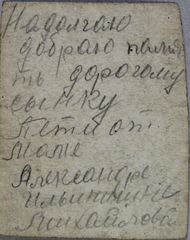 На долгаю
добраю памя
ть дорогому
сынку
Пети от
маме
Александре
Ильиничне
Михайлової